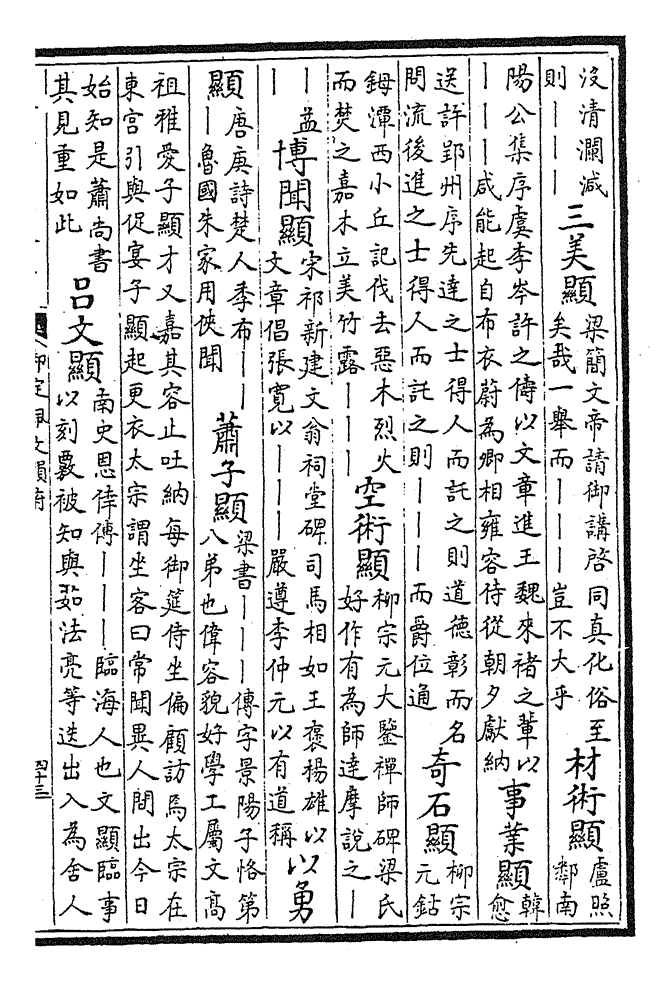 沒清瀾減
則｜｜｜
三美顯
梁簡文帝請御講啓同真化俗至
矣哉一舉而｜｜｜豈不大乎
材術顯
盧照
鄰南
陽公集序虞李岑許之儔以文章進王魏來褚之輩以
｜｜｜咸能起自布衣蔚為卿相雍容侍從朝夕獻納
事業顯
韓
愈
送許郢州序先達之士得人而託之則道德彰而名
問流後進之士得人而託之則｜｜｜而爵位通
奇石顯
柳宗
元鈷
鉧潭西小丘記伐去惡木烈火
而焚之嘉木立美竹露｜｜｜
空術顯
柳宗元大鑒禪師碑梁氏
好作有為師達摩說之｜
｜益
｜
博聞顯
宋祁新建文翁祠堂碑司馬相如王褒楊雄以
文章倡張寬以｜｜｜嚴遵李仲元以有道稱
以勇
顯
唐庚詩楚人季布｜｜
｜魯國朱家用俠聞
蕭子顯
梁書｜｜｜傳字景陽子恪第
八弟也偉容貌好學工屬文高
祖雅愛子顯才又嘉其容止吐納每御筵侍坐偏顧訪焉太宗在
東宮引與促宴子顯起更衣太宗謂坐客曰常聞異人間出今日
始知是蕭尚書
其見重如此
呂文顯
南史恩倖傳｜｜｜臨海人也文顯臨事
以刻覈被知與茹法亮等迭出入為舍人